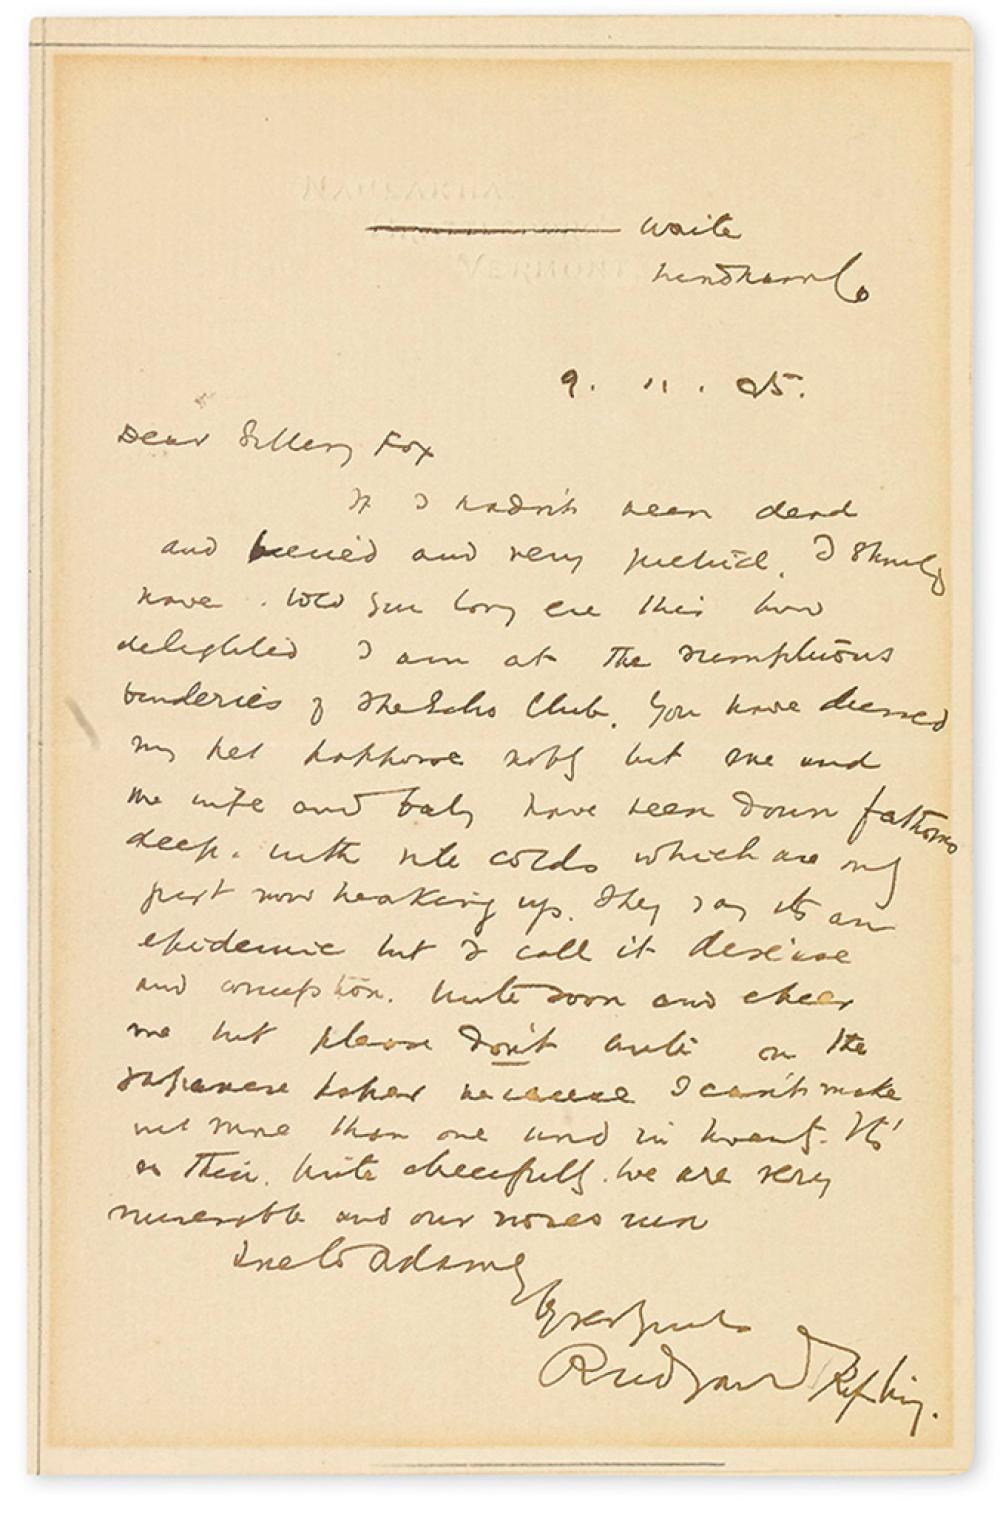 NAULAKHA
VERMONT.
Waite
Windham Co
9. 11. 95.
Dear Fox
If I hadn't been dead
and buried and very putrid, I should
have told you long ere this how
delighted I am at the sumptuous
binderies of The Echo Club. You have dressed
my pet nobly but me and
me wife and baby have been down fathoms
deep. with vile colds which are only
just now breaking up. They say its an
epidemic but I call it disease
and corruption. Write soon and cheer
me but please don't write on the
Japanese paper because I can't make
out more than one word in twenty. It's
so thin. Write cheerfully. We are very
miserable and our noses run
Adams
Yours
Rudyard Kipling.